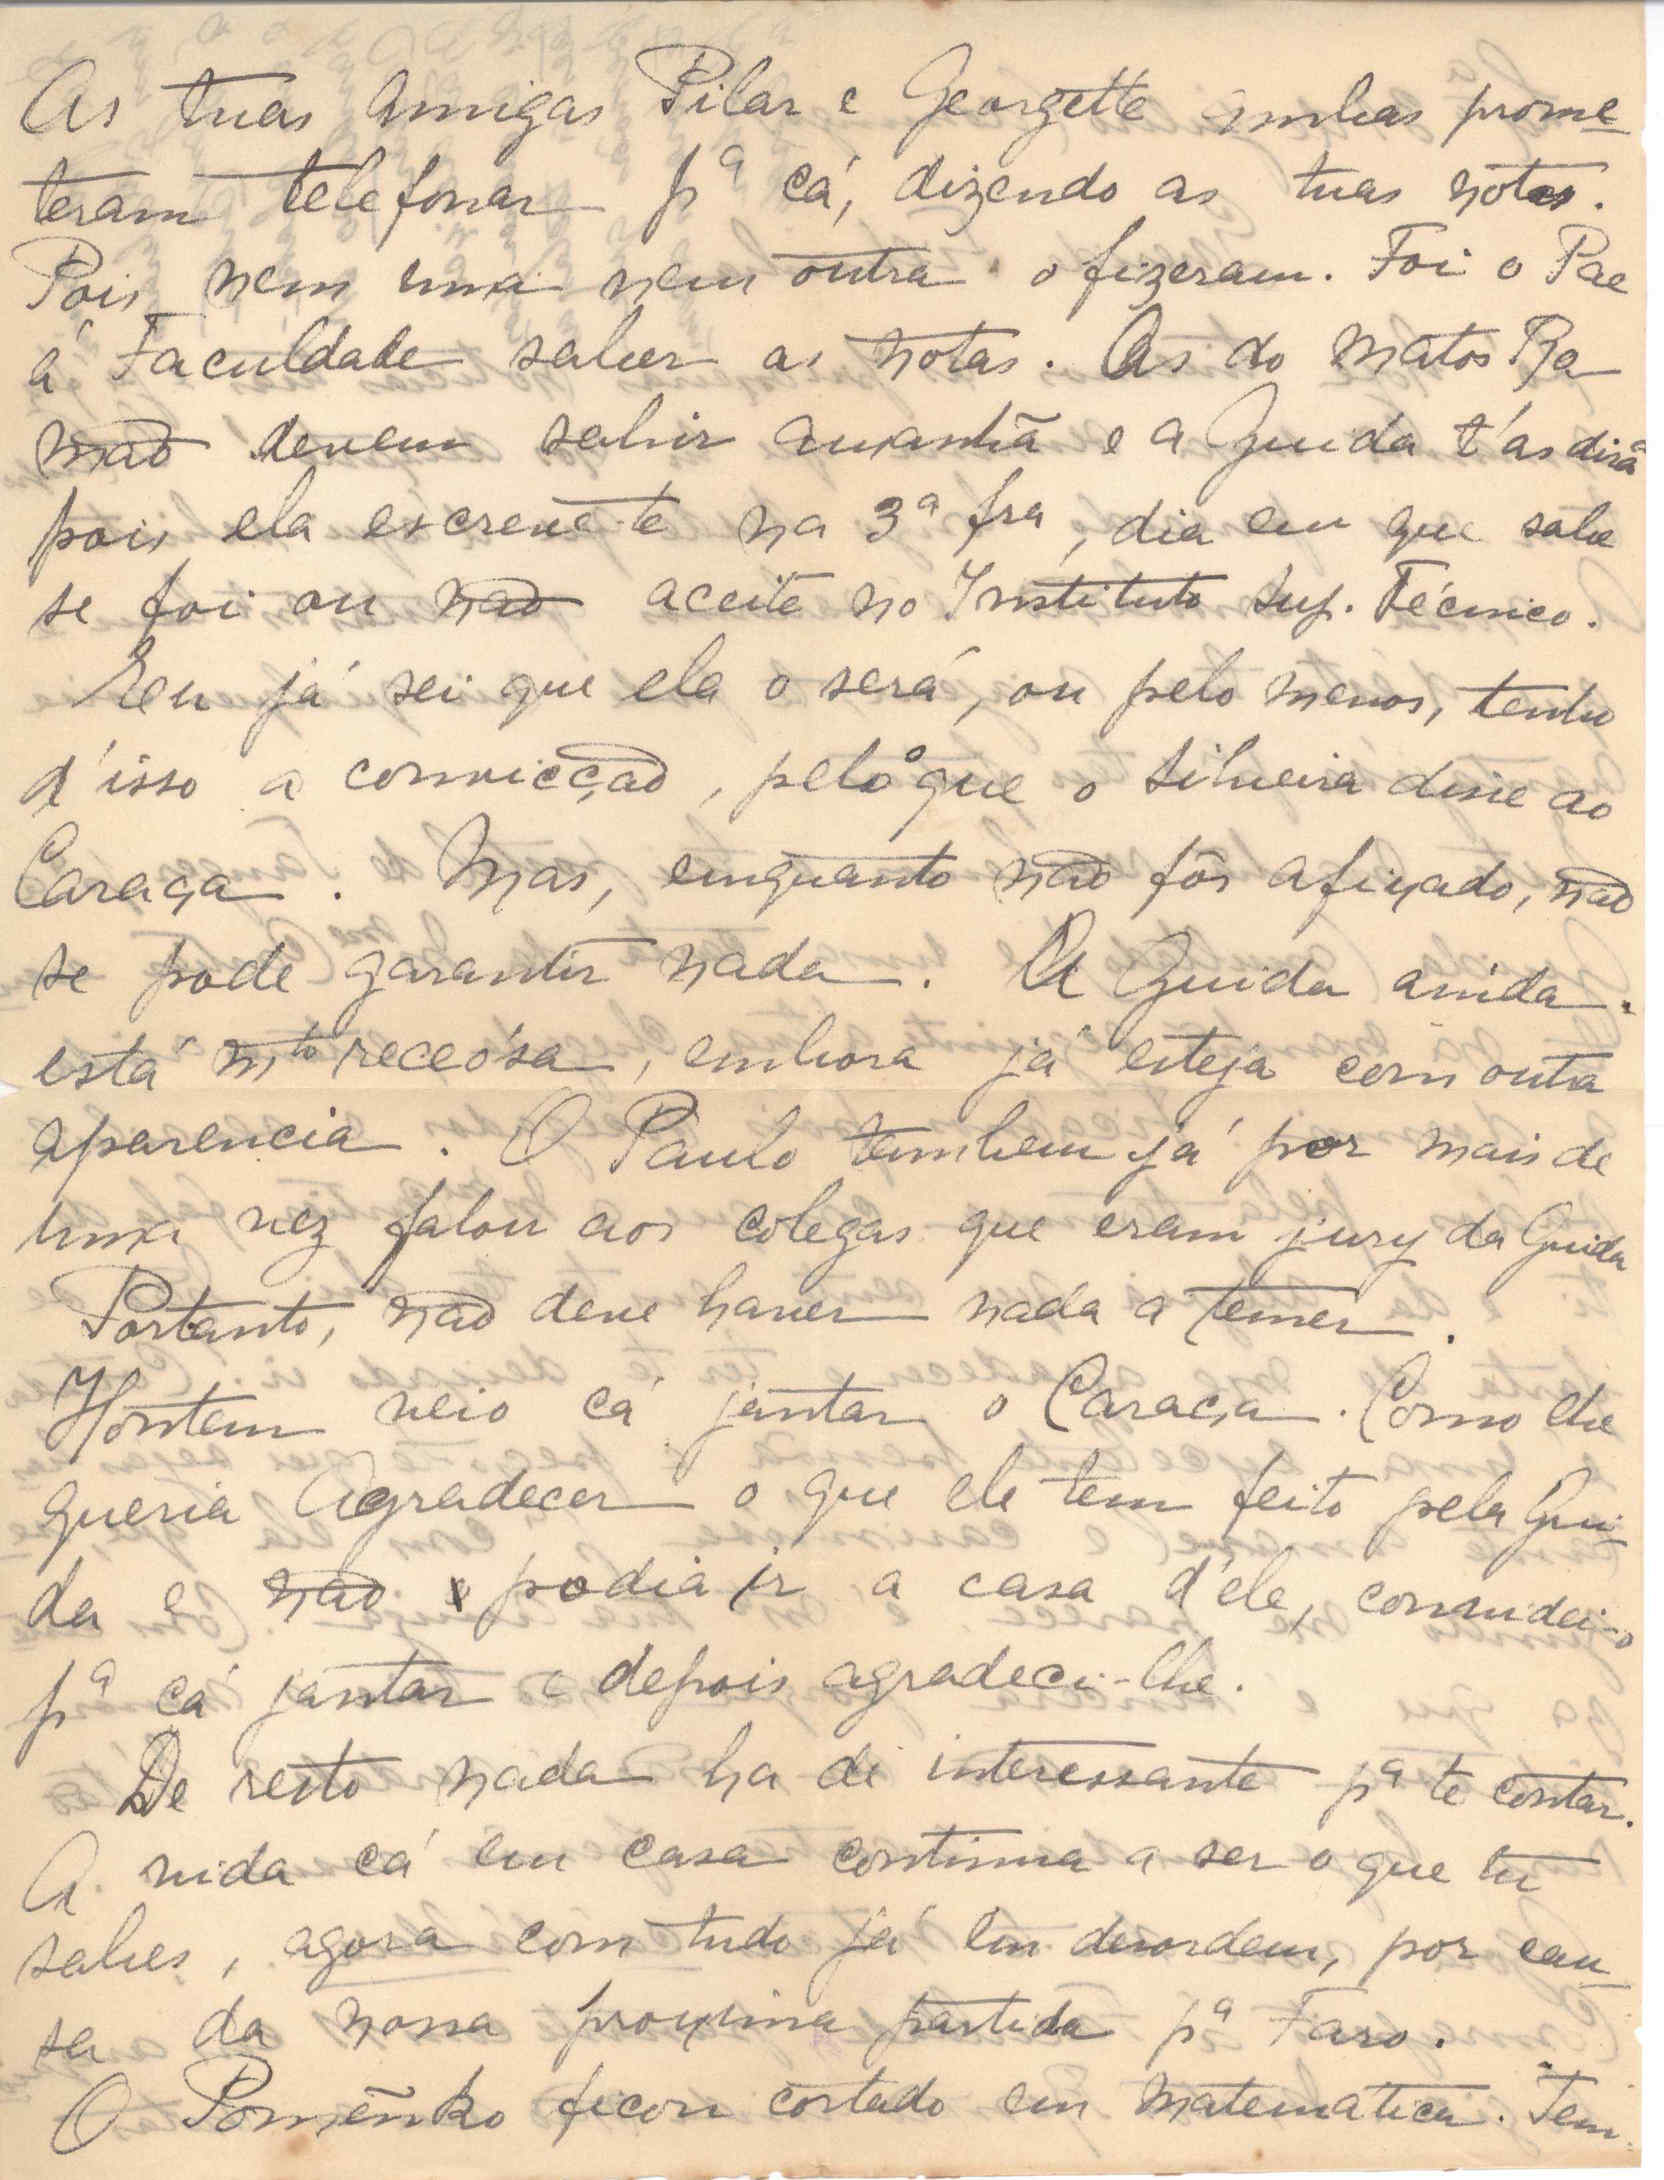 As tuas amigas Pilar e Georgette ambas prome-
teram telefonar pª cá, dizendo as tuas nótas.
Pois nem uma nem outra o fizeram. Foi o Pae
á Faculdade saber as notas. As do Matos Ro
mão devem sahir amanhã e a Guida t'as dirá
pois ela escreve-te na 3ª fra, dia em que sabe
se foi ou não aceite no Instituto Sup. Técnico.
Eu já sei que ela o será, ou pelo menos, tenho
d'isso a convicção, pelo que o Silveira disse ao
Caraça. Mas, emquanto não fôr afixado, não
se pode garantir nada. A Guida ainda
está mto receósa, embora já esteja com outra
aparencia. O Paulo tambem já por mais de
uma vez falou aos colegas que eram jury da Guida
Portanto, não deve haver nada a temer.
Hontem veio cá jantar o Caraça. Como lhe
queria agradecer o que ele tem feito pela Gui-
da e não podia ir a casa d'ele, convidei-o
pª cá jantar e depois agradeci-lhe.
De resto nada ha de interessante pª te contar.
A vida cá em casa continua a ser o que tu
sabes, agora com tudo já em desordem, por cau-
sa da nossa proxima partida pª Faro.
O Pomênko ficou cortado em matematica. Tem